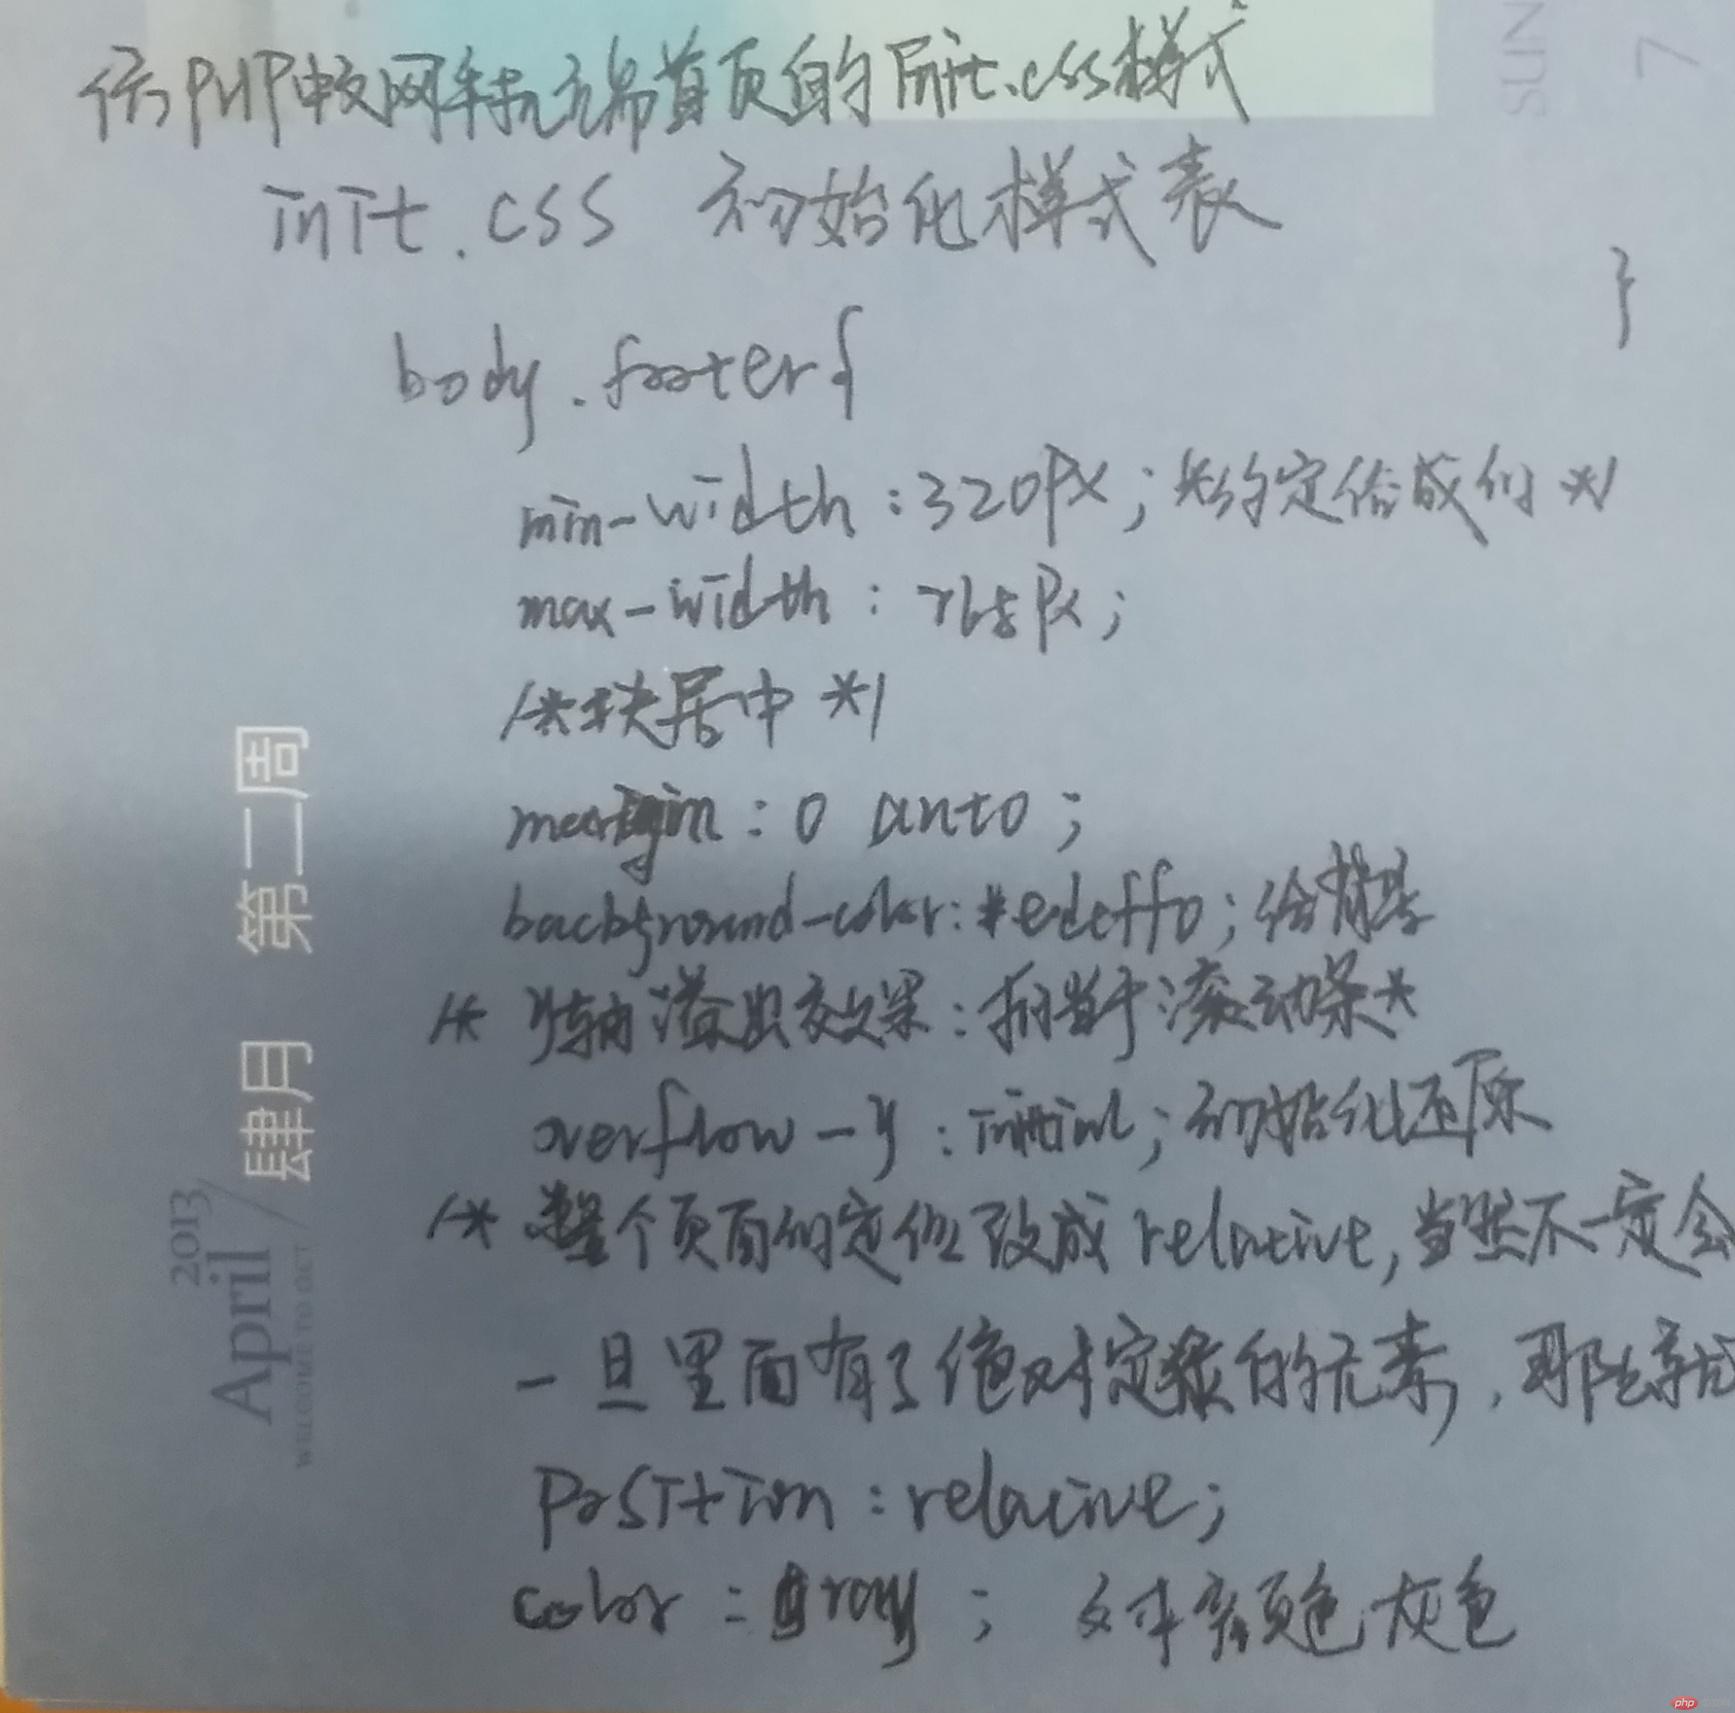 仿PHP中文网手机端首页的init.css样式
init.css 初始化样式表
body.footer{
min-width:320px; *约定俗成的 */
max-width: 768px;
/*块居中 */
margin: 0 auto;
background-color:#edeff0; 给背景
/* y轴溢出效果:相当于滚动条*
overflow-y:initial; 初始化还原
/* 整个页面的定位改成relative,当然不一定会
一旦里面有了绝对定位的元素,那么就
position:relative;
color:gray; 文本颜色灰色
}
SUN
7
肆月 第二周
2013
April
WELCOME TO OCT
php